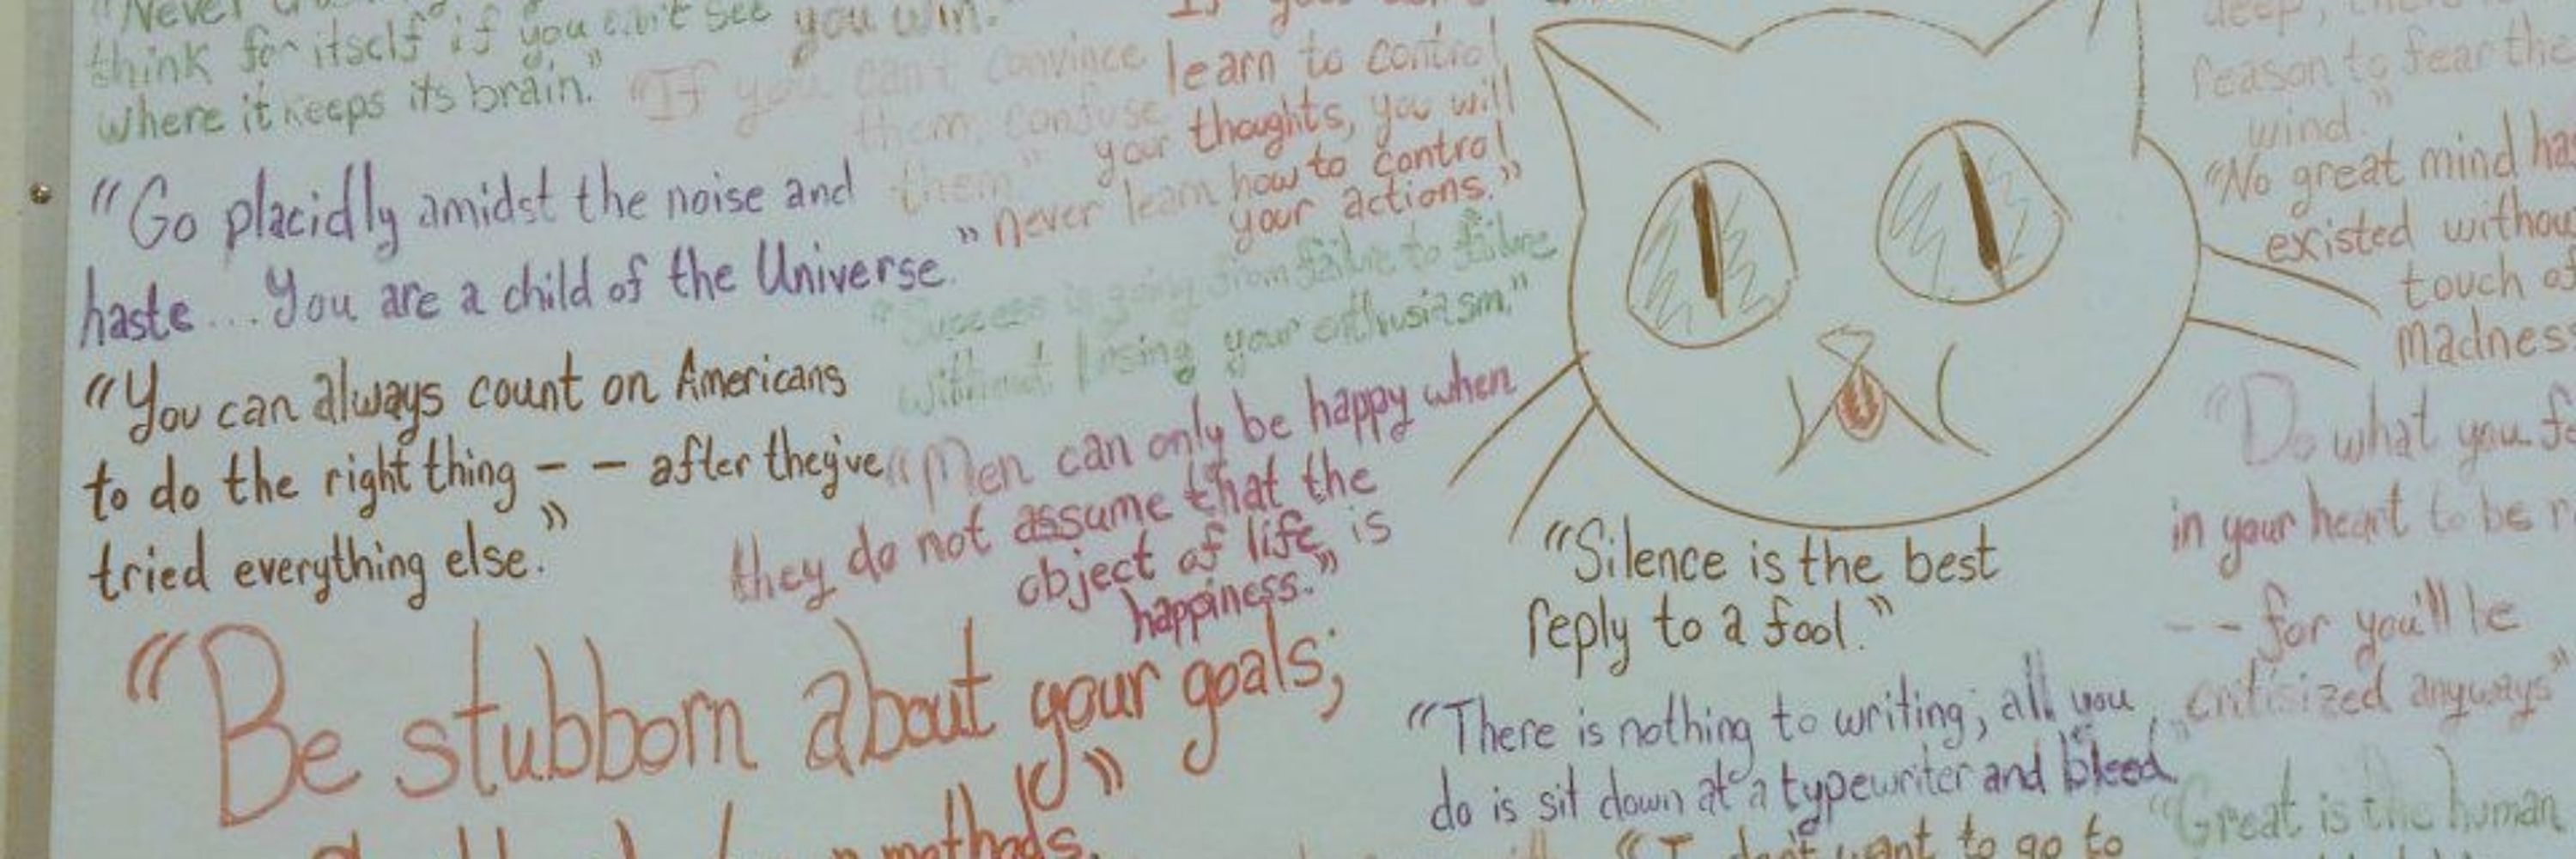 "Never
think for itself if you can't see
where it keeps its brain."
you win."
"If you can't convince
them, confuse
them"
If you
learn to control
your thoughts, you will
never learn how to control
your actions."
"Go placidly amidst the noise and
haste...You are a child of the Universe."
"Success is going from failure to failure
without losing your enthusiasm."
"You can always count on Americans
to do the right thing -- after they've
tried everything else."
"Men can only be happy when
they do not assume that the
object of life is
happiness."
"Be stubborn about your goals;
methods."
"Silence is the best
reply to a fool."
"There is nothing to writing; all you
do is sit down at a typewriter and bleed."
"I don't want to go to
deep,
reason to fear the
wind."
"No great mind has
existed without
touch of
madness
"Do what you
in your heart to be
-- for you'll be
critisized anyways"
"Great is the human